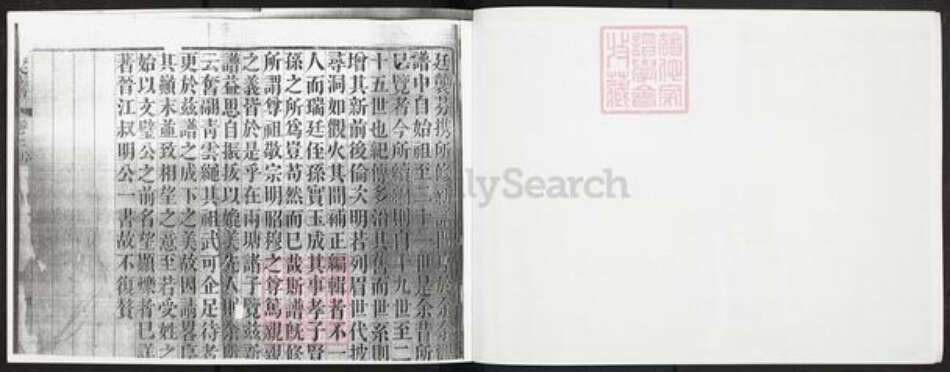 廷襲芬携所
譜中自始祖至二十一世是余昔所
已覽者今所續則自十九世至二
十五世也紀傳多沿其舊而世系則
增其新前後倫次明若列眉世代披
尋洞如觀火其間補正編輯者不一
人而瑞廷侄孫寶玉成其事孝子賢
孫之所爲豈苟然而已哉斯譜旣修
所謂尊祖敬宗明昭穆之尊篤親親
之義皆於是乎在兩塘諸子覽茲新
譜益思自振拔以媲美先人則余
云奮翮靑雲繩其祖武可企足待者
更於茲譜之成下之美故因請畧序
其顚末並致相望之意至若受姓之
始以文璧公之前名望顯懷者已詳
著晉江叔明公一書故不復贅
譜學會
收藏
lySearch